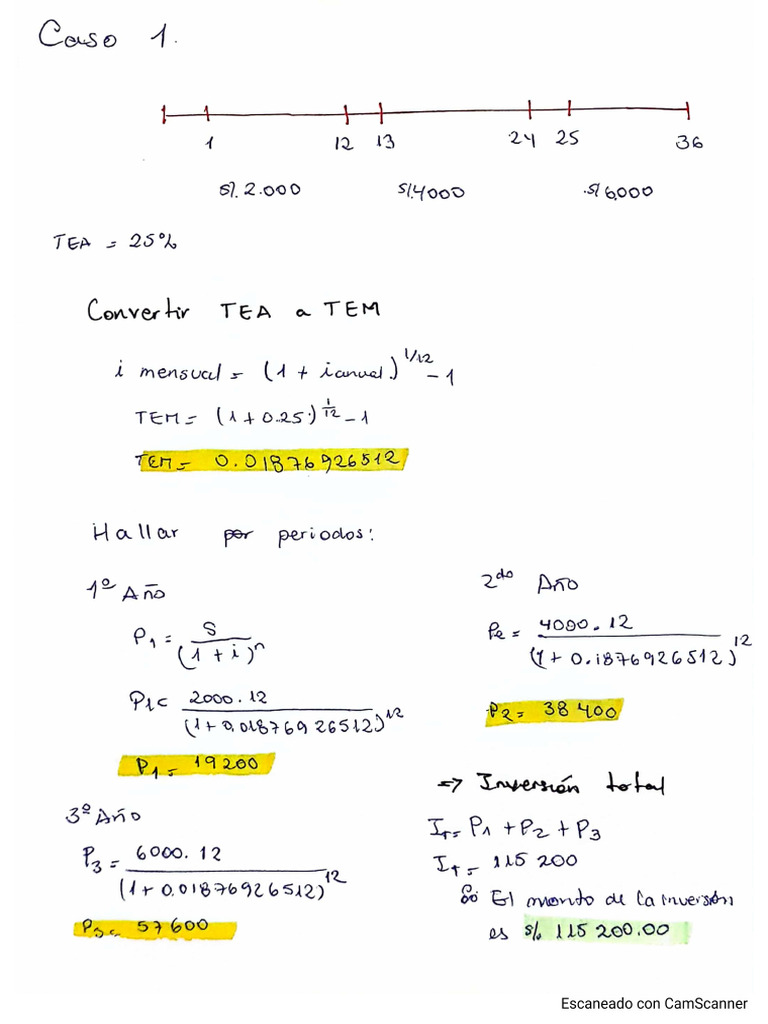 Caso 1.
1 12 13 24 25 36
S/. 2.000 S/.4000 S/ 6,000
TEA = 25%
Convertir TEA a TEM
i mensual = (1 + i anual.)^1/12 - 1
TEM = (1 + 0.25)^1/12 - 1
TEM = 0.01876926512
Hallar por periodos:
1º Año
P1 = S / (1 + i)^n
P1 = 2000.12 / (1+0.01876926512)^12
P1 = 19200
2do Año
P2 = 4000.12 / (1 + 0.1876926512)^12
P2 = 38 400
3º Año
P3 = 6000.12 / (1+0.01876926512)^12
P3 = 57600
=> Inversión total
IT = P1 + P2 + P3
IT = 115 200
El monto de la inversión
es S/. 115 200.00
Escaneado con CamScanner